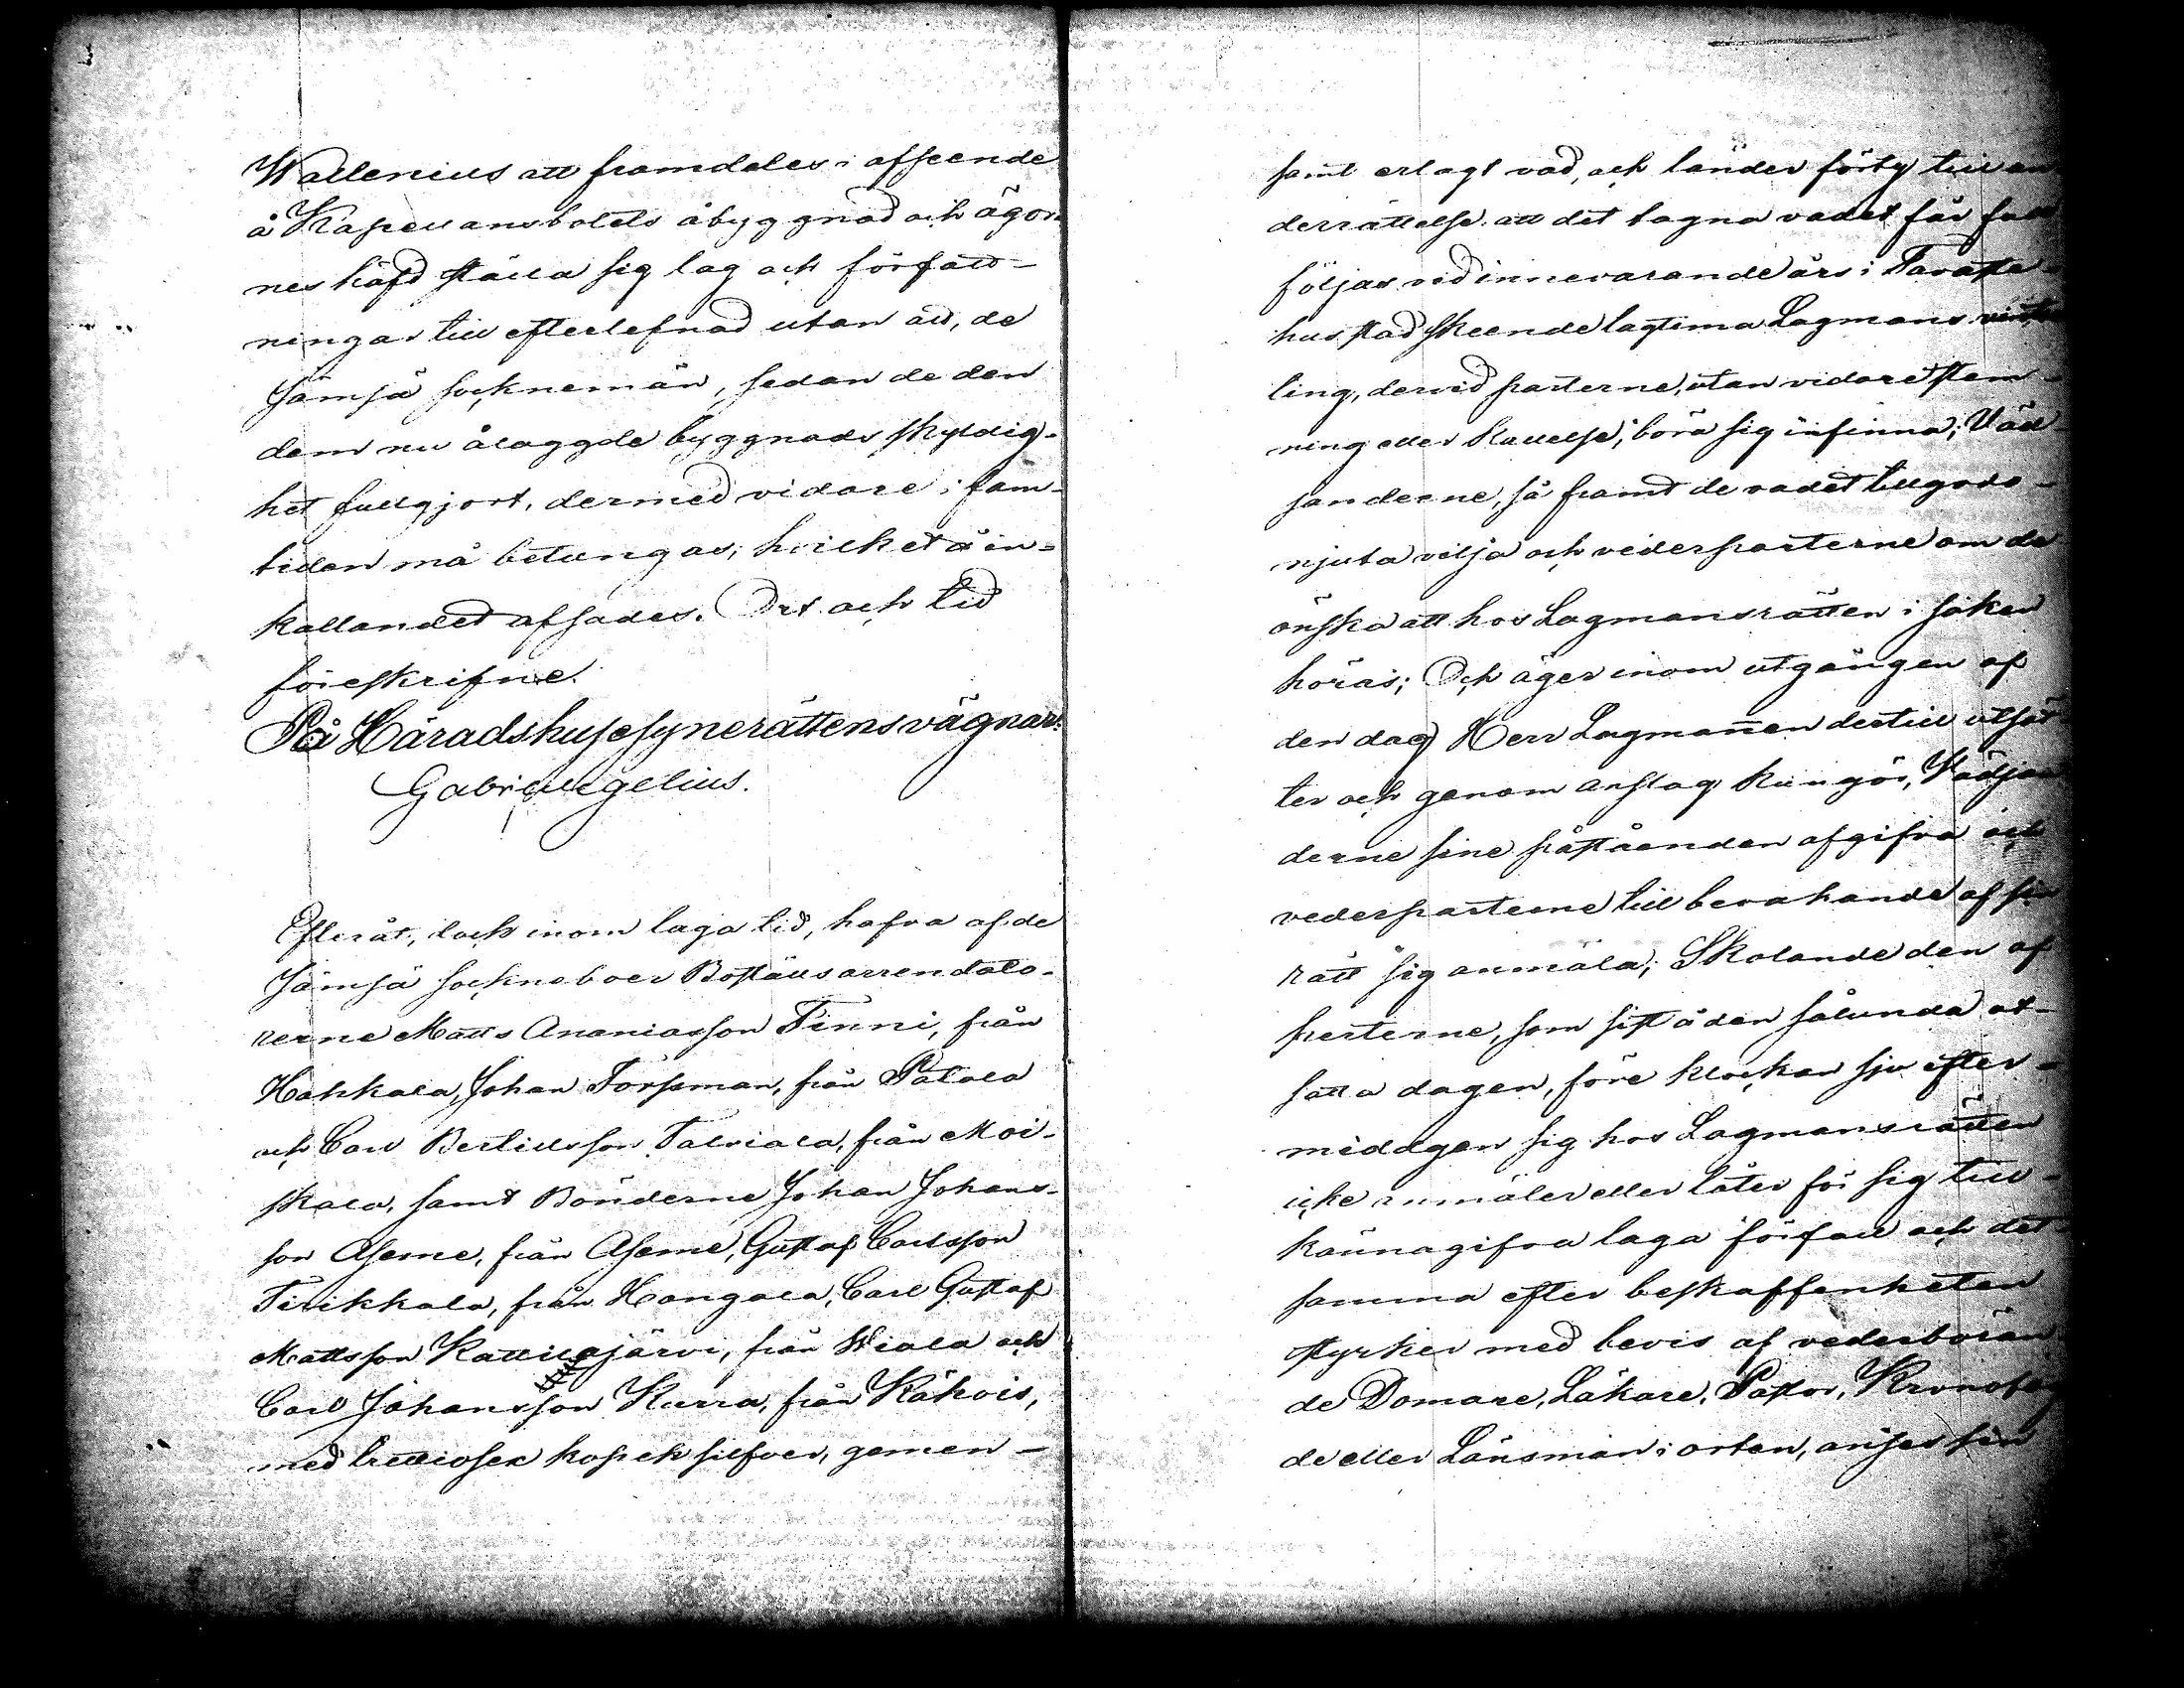 Wallenius att framdeles i afseende
å Kapellansbolets åbyggnad och ägor-
nes häfd ställa sig lag och författ-
ningar till efterlefnad utan att, de
Jämsä socknemän, sedan de den
dem nu ålaggde byggnads skyldig-
het fullgjort, dermed vidare i fram-
tiden må betungas; hvilket å in-
kallandet afsades. Ort och tid
föreskrifne.
På Häradshusesynerättens vägnar:
Gabriel
Efteråt, dock inom laga tid, hafva af de
Jämsä sockneboer Boställsarrendato-
rerne Matts Ananiasson Tinni, från
Hahkala, Johan Torpman, från Patala
och Carl Bertillsson Talviala, från Moi-
skala, samt Bönderne Johan Johans-
son Aseme, från Aseme, Gustaf Carlsson
Tirikkala, från Hangala, Carl Gustaf
Mattsson Kattilajärvi, från Wiala och
Carl Johansson Kurra, från Kähöis,
med trettiosex kopek silfver, gemen-
samt erlagt vad, och länder förty till un-
derrättelse: att det tagna vadet får full
följas vid innevarande års i Tavaste-
hus stad skeende lagtima Lagmans vinter
ting, dervid parterne, utan vidare stem-
ning eller kallelse, böra sig infinna; Väd-
janderne, så framt de vadet tillgodo-
njuta vilja och vederparterne om de
önska att hos Lagmansrätten i saken
höras; Och äger inom utgången af
den dag Herr Lagmannen dertill utsät-
ter och genom anslag kungör, Vädjan
derne sine påståenden afgifva och
vederparterne till bevakande af sin
rätt sig anmäla; Skolande den af
parterne, som sist å den sålunda ut-
satta dagen, före klockan sju efter-
middgen sig hos Lagmansrätten
icke anmäler eller låter för sig till-
kännagifva laga förfall och det-
samma efter beskaffenheten
styrker med bevis af vederböran
de Domare, Läkare, Pastor, Kronofog
de eller Länsman i orten, anses sin